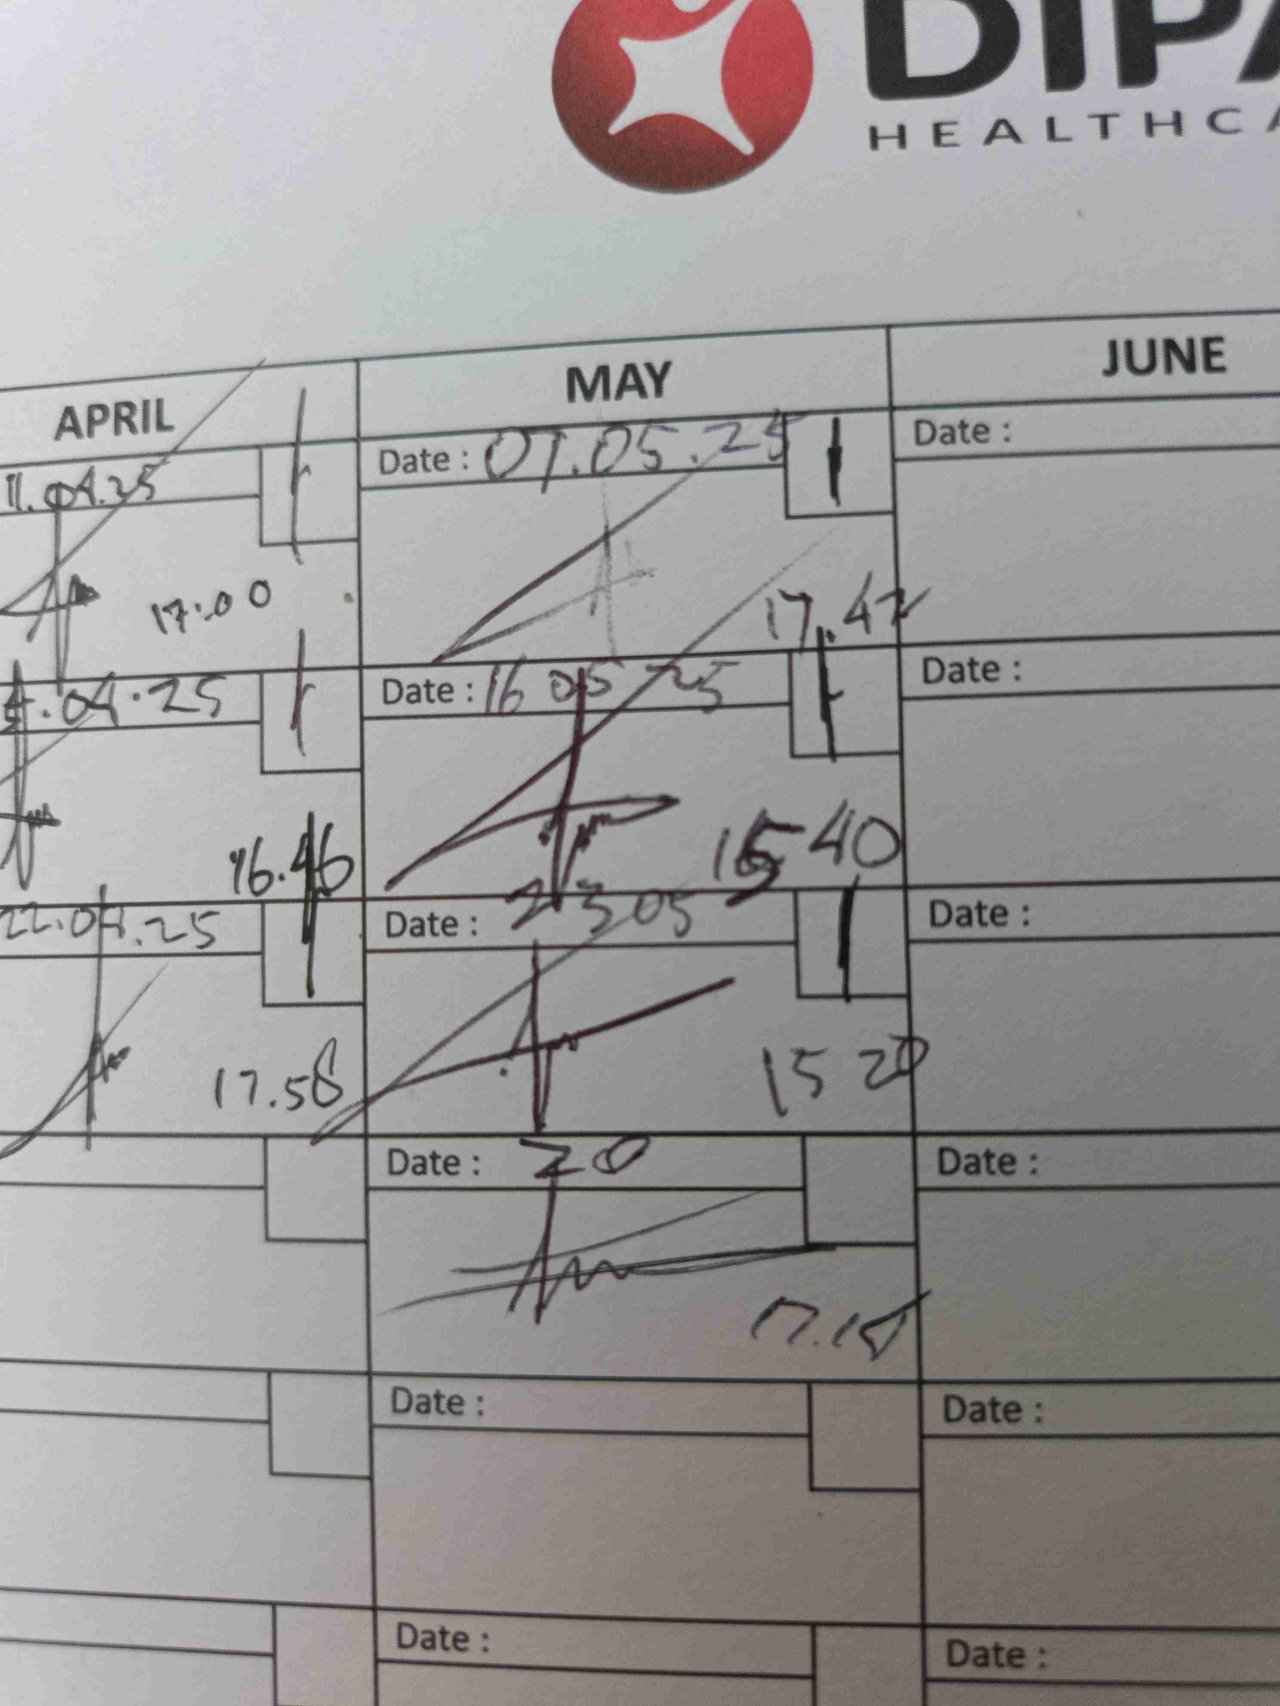 DIPA
HEALTHCA
APRIL
MAY
JUNE
11.04.25
Date : 07.05.25
Date :
17:00
17.42
.04.25
Date : 16 05 25
Date :
16.46
15 40
22.04.25
Date : 23 05
Date :
17.58
15 20
Date : 20
Date :
17.18
Date :
Date :
Date :
Date :